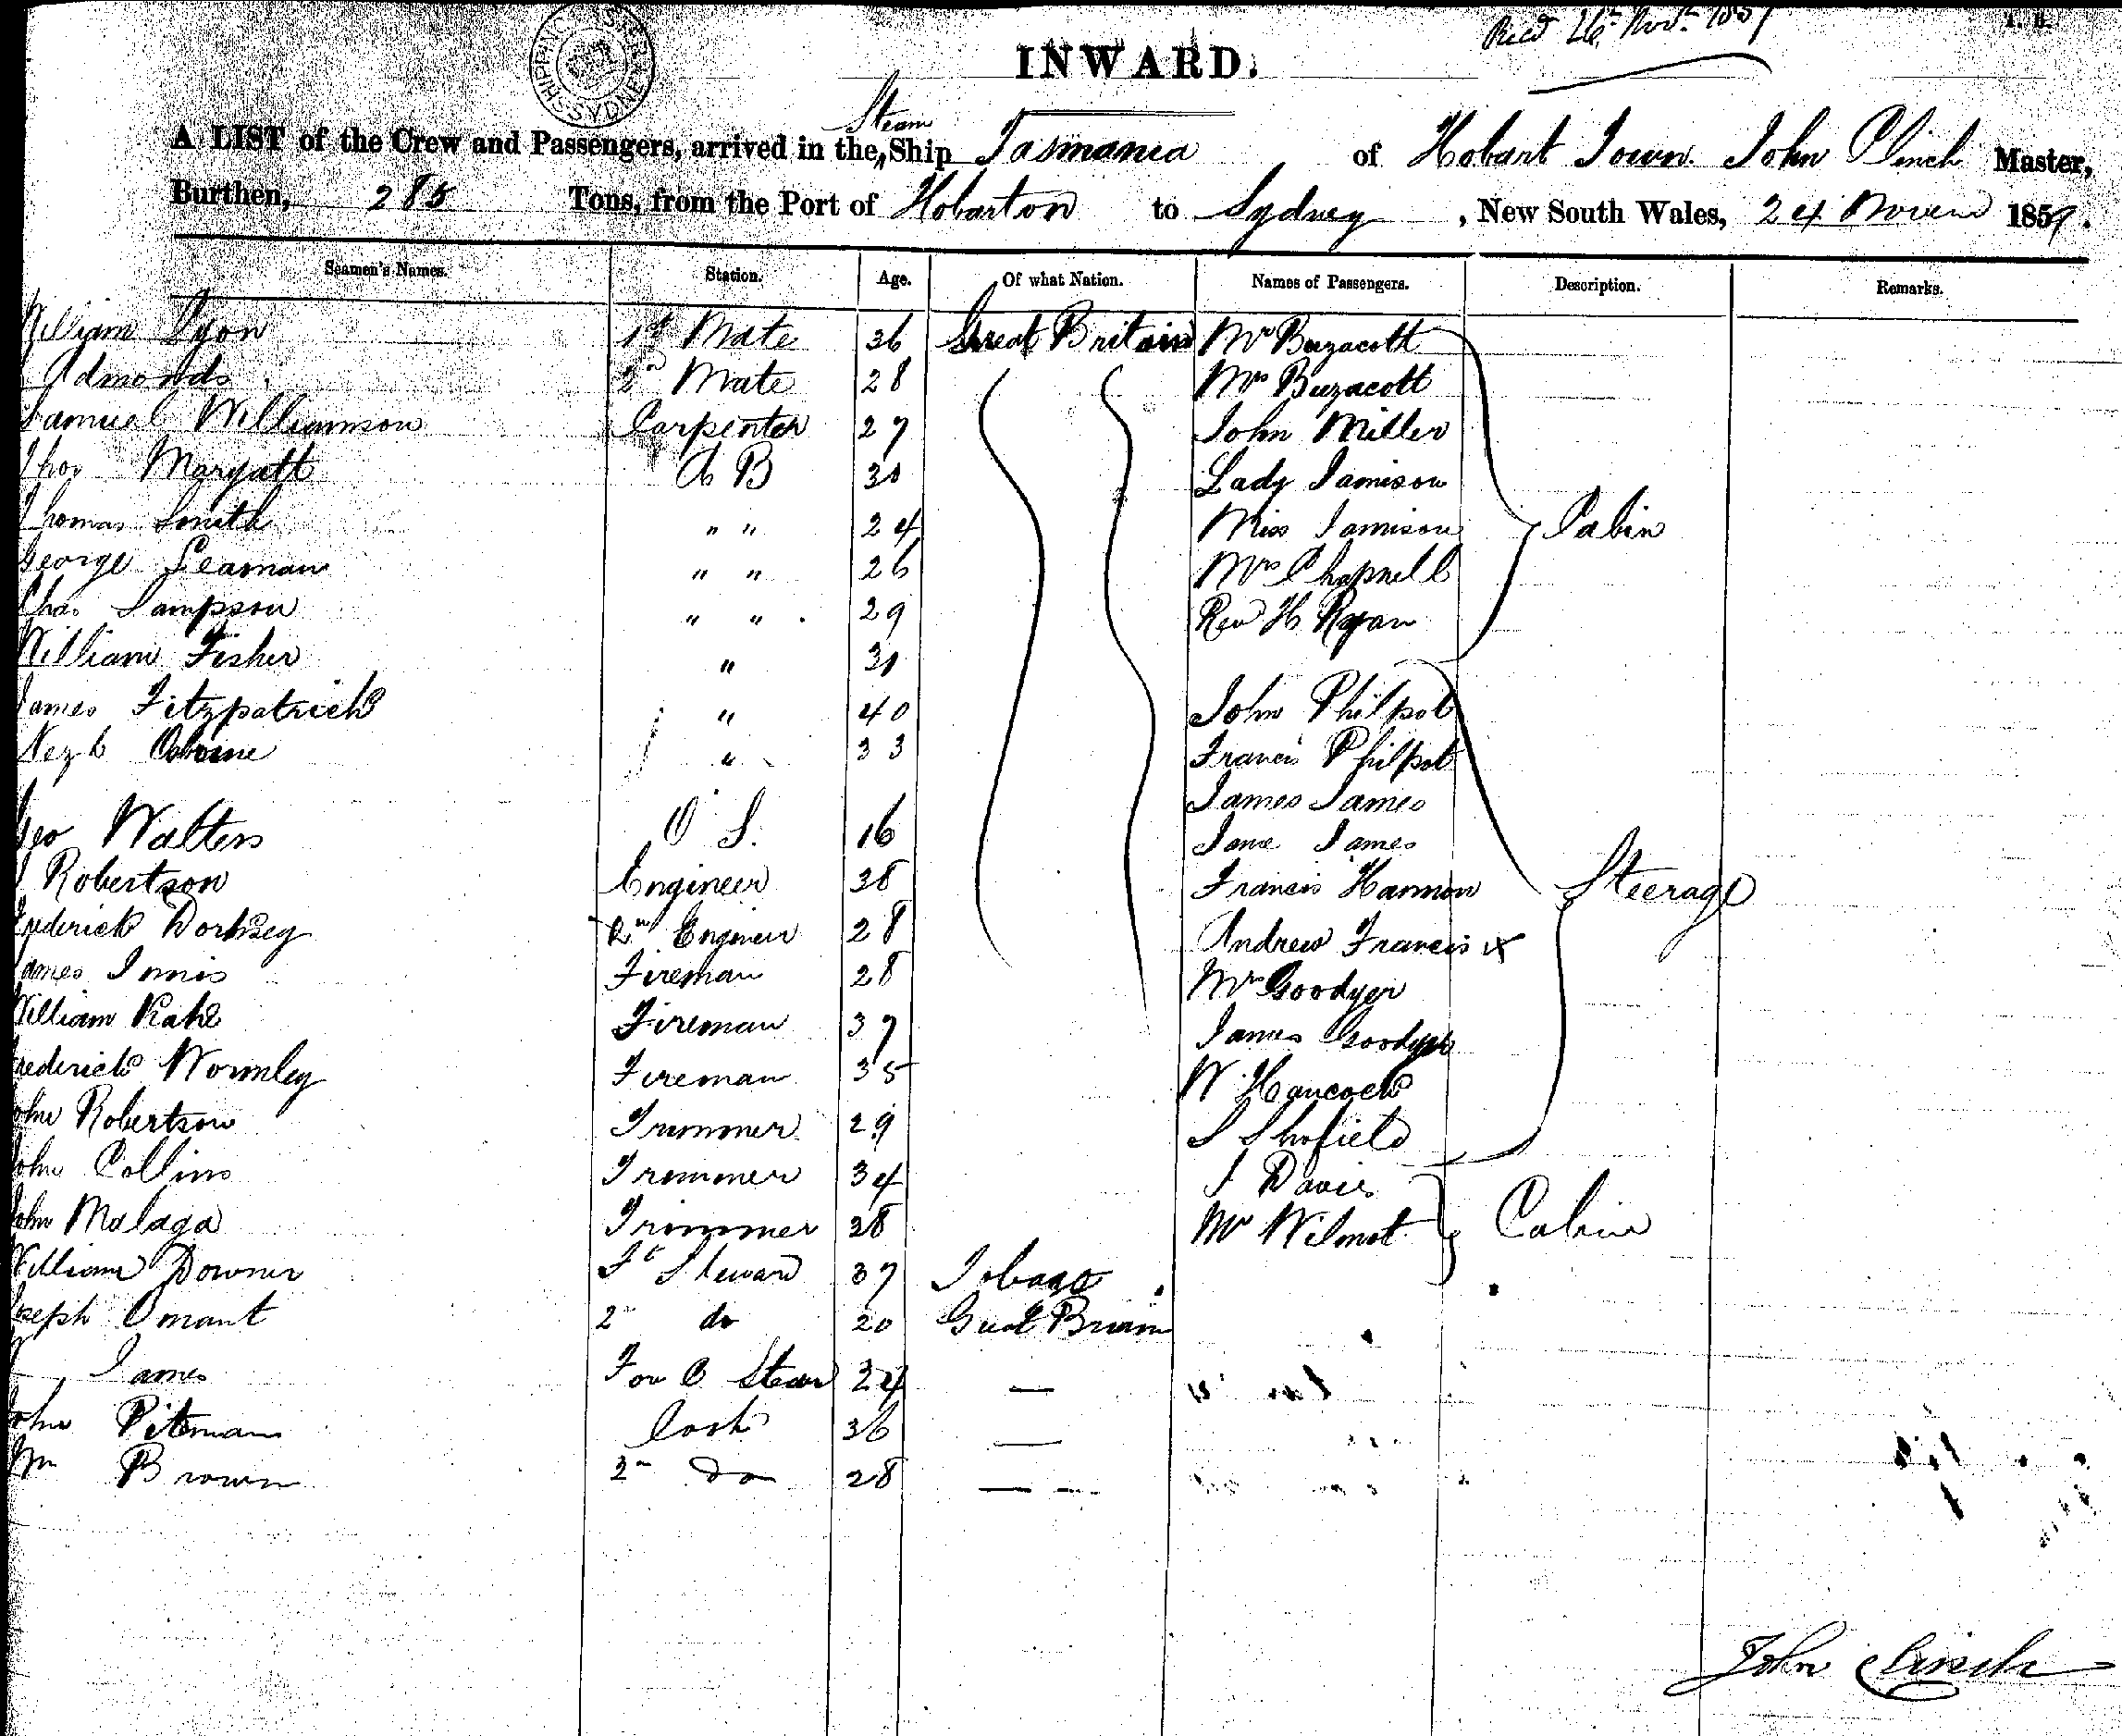 Recd 26th Novr 1859
INWARD.
SHIPPING SYDNEY
Steam
A LIST of the Crew and Passengers, arrived in the ^ Ship Tasmania of Hobart Town John Clinch Master,
Burthen, 285 Tons, from the Port of Hobarton to Sydney, New South Wales, 24 Novem 1859.
Seamen's Names. Station. Age. Of what Nation. Names of Passengers. Description. Remarks.
William Lyon 1st Mate 36 Great Britain Mr Buzacott
Admonds 2nd Mate 28 Mrs Buzacott
Samuel Williamson Carpenter 27 John Miller
Thos Maryatt A B 30 Lady Jamison
Thomas Smith " " 24 Miss Jamison Cabin
George Seaman " " 26 Mrs Chapnell
Chas Sampson " " 29 Rev H Ryan
William Fisher " 31
James Fitzpatrick " 40 John Philpot
Osborne " 33 Francis Philpot
James James
Geo Walters O S. 16 Jane James
Robertson Engineer 38 Francis Hannon Steerage
Frederick Dorhsey 2nd Engineer 28 Andrew Francis x
James Innis Fireman 28 Mr Goodyer
William Kahe Fireman 37 James Goodyer
Frederick Wormley Fireman 35 W Hancock
John Robertson Trimmer 29 S Shofield
John Collins Trimmer 34 J Davies
John Malaga Trimmer 28 Mr Wilmot Cabin
William Downer St Steward 37 Tobago
Joseph Omant 2nd do 20 Great Britain
James For C Stewd 24 —
John Piteman Cook 36 —
Wm Brown 2nd Do 28 — —
John Clinch